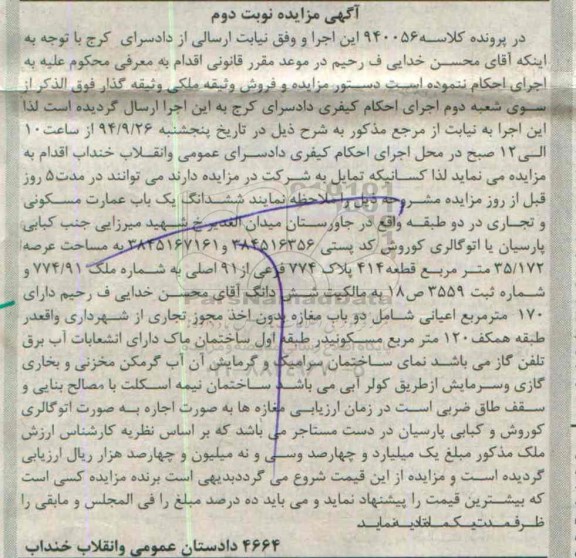 آگهی مزایده نوبت دوم
در پرونده کلاسه۹۴۰۰۵۶ این اجرا و وفق نیابت ارسالی از دادسرای کرج با توجه به
اینکه آقای محسن خدایی ف رحیم در موعد مقرر قانونی اقدام به معرفی محکوم علیه به
اجرای احکام ننموده است دستور مزایده و فروش وثیقه ملکی وثیقه گذار فوق الذکر از
سوی شعبه دوم اجرای احکام کیفری دادسرای کرج به این اجرا ارسال گردیده است لذا
این اجرا به نیابت از مرجع مذکور به شرح ذیل در تاریخ پنجشنبه ۹۴/۹/۲۶ از ساعت۱۰
الی۱۲ صبح در محل اجرای احکام کیفری دادسرای عمومی وانقلاب خنداب اقدام به
مزایده می نماید لذا کسانیکه تمایل به شرکت در مزایده دارند می توانند در مدت۵ روز
قبل از روز مزایده مشروحه ذیل را ملاحظه نمایند ششدانگ یک باب عمارت مسکونی
و تجاری در دو طبقه واقع در جاورستان میدان الغدیر خ شهید میرزایی جنب کبابی
پارسیان یا اتوگالری کوروش کد پستی ۳۸۴۵۱۶۳۵۶ و۳۸۴۵۱۶۷۱۶۱ به مساحت عرصه
۳۵/۱۷۲ متر مربع قطعه۴۱۴ پلاک ۷۷۴ فرعی از۹۱ اصلی به شماره ملک ۷۷۴/۹۱ و
شماره ثبت ۳۵۵۹ ص۱۸ به مالکیت شش دانگ آقای محسن خدایی ف رحیم دارای
۱۷۰ مترمربع اعیانی شامل دو باب مغازه بدون اخذ مجوز تجاری از شهرداری واقعدر
طبقه همکف۱۲۰ متر مربع مسکونیدر طبقه اول ساختمان ماک دارای انشعابات آب برق
تلفن گاز می باشد نمای ساختمان سرامیک و گرمایش آن آب گرمکن مخزنی و بخاری
گازی وسرمایش ازطریق کولر آبی می باشد ساختمان نیمه اسکلت با مصالح بنایی و
سقف طاق ضربی است در زمان ارزیابی مغازه ها به صورت اجاره به صورت اتوگالری
کوروش و کبابی پارسیان در دست مستاجر می باشد که بر اساس نظریه کارشناس ارزش
ملک مذکور مبلغ یک میلیارد و چهارصد وسی و نه میلیون و چهارصد هزار ریال ارزیابی
گردیده است و مزایده از این قیمت شروع می گرددبدیهی است برنده مزایده کسی است
که بیشترین قیمت را پیشنهاد نماید و می باید ده درصد مبلغ را فی المجلس و مابقی را
ظرف مدت یک ماه تادیه نماید
۴۶۶۴ دادستان عمومی وانقلاب خنداب